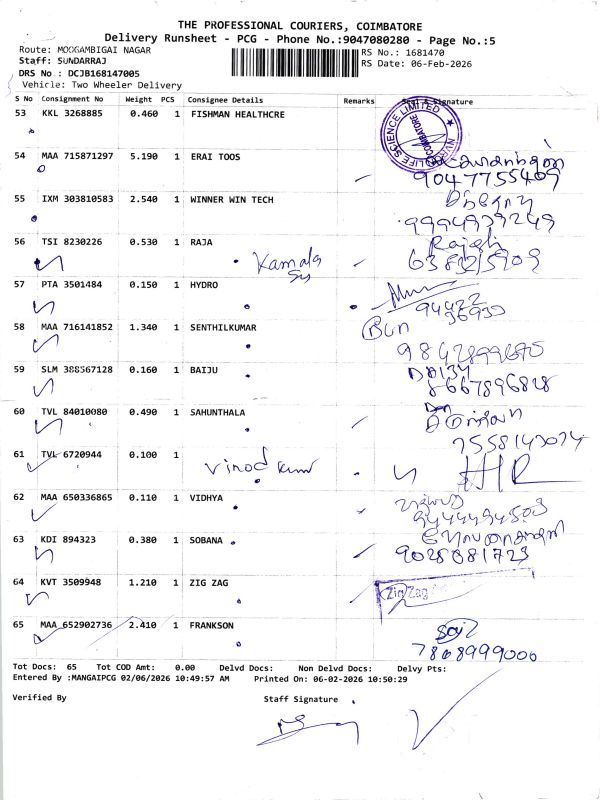 THE PROFESSIONAL COURIERS, COIMBATORE
Delivery Runsheet - PCG - Phone No.:9047080280 - Page No.:5
Route: MOOGAMBIGAI NAGAR
RS No.: 1681470
Staff: SUNDARRAJ
RS Date: 06-Feb-2026
DRS No : DCJB168147005
Vehicle: Two Wheeler Delivery
S No Consignment No Weight PCS Consignee Details Remarks Seal & Signature
53 KKL 3268885 0.460 1 FISHMAN HEALTHCRE
LIFE SCIENCE LIMITED
COIMBATORE
54 MAA 715871297 5.190 1 ERAI TOOS
9047755409
55 IXM 303810583 2.540 1 WINNER WIN TECH
9994939249
56 TSI 8230226 0.530 1 RAJA Kamala Rajesh
57 PTA 3501484 0.150 1 HYDRO
94422
58 MAA 716141852 1.340 1 SENTHILKUMAR
59 SLM 388567128 0.160 1 BAIJU
8667896828
60 TVL 84010080 0.490 1 SAHUNTHALA
61 TVL 6720944 0.100 1 Vinod kum
62 MAA 650336865 0.110 1 VIDHYA
63 KDI 894323 0.380 1 SOBANA
9028681723
64 KVT 3509948 1.210 1 ZIG ZAG
Zig Zag
65 MAA 652902736 2.410 1 FRANKSON
7868999000
Tot Docs: 65 Tot COD Amt: 0.00 Delvd Docs: Non Delvd Docs: Delvy Pts:
Entered By :MANGAIPCG 02/06/2026 10:49:57 AM Printed On: 06-02-2026 10:50:29
Verified By Staff Signature